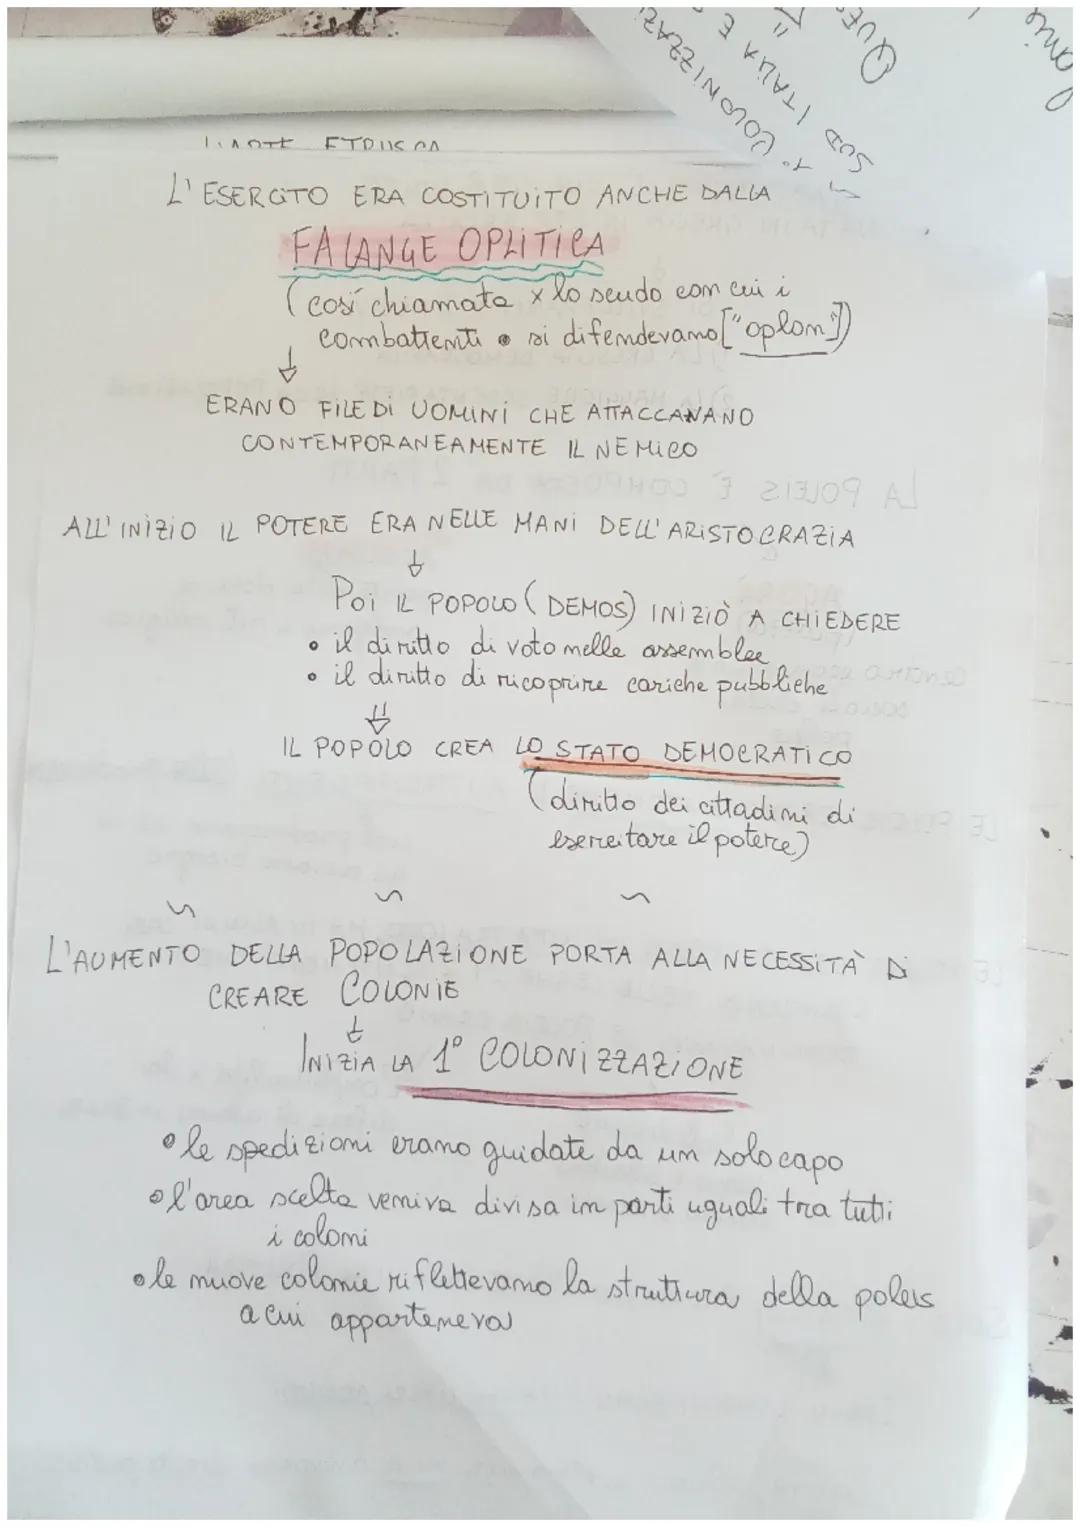 L'ESERCITO ERA COSTITUITO ANCHE DALLA
FALANGE OPLITICA
(così chiamata x lo scudo con cui i
combattenti • si difendevano ["oplon"])
↓
ERANO FILE DI UOMINI CHE ATTACCANANO
CONTEMPORANEAMENTE IL NEMICO
ALL'INIZIO IL POTERE ERA NELLE MANI DELL'ARISTOCRAZIA
↓
POI IL POPOLO (DEMOS) INIZIÒ A CHIEDERE
• il diritto di voto nelle assemblee
• il diritto di ricoprire cariche pubbliche
⇓
IL POPOLO CREA LO STATO DEMOCRATICO
(diritto dei cittadini di
esercitare il potere)
~ ~ ~
L'AUMENTO DELLA POPOLAZIONE PORTA ALLA NECESSITÀ DI
CREARE COLONIE
↓
INIZIA LA 1° COLONIZZAZIONE
• le spedizioni erano guidate da un solo capo
• l'area scelta veniva divisa in parti uguali tra tutti
i coloni
• le nuove colonie riflettevano la struttura della poleis
a cui apparteneva
1° COLONIZZAZI
SUD ITALIA E